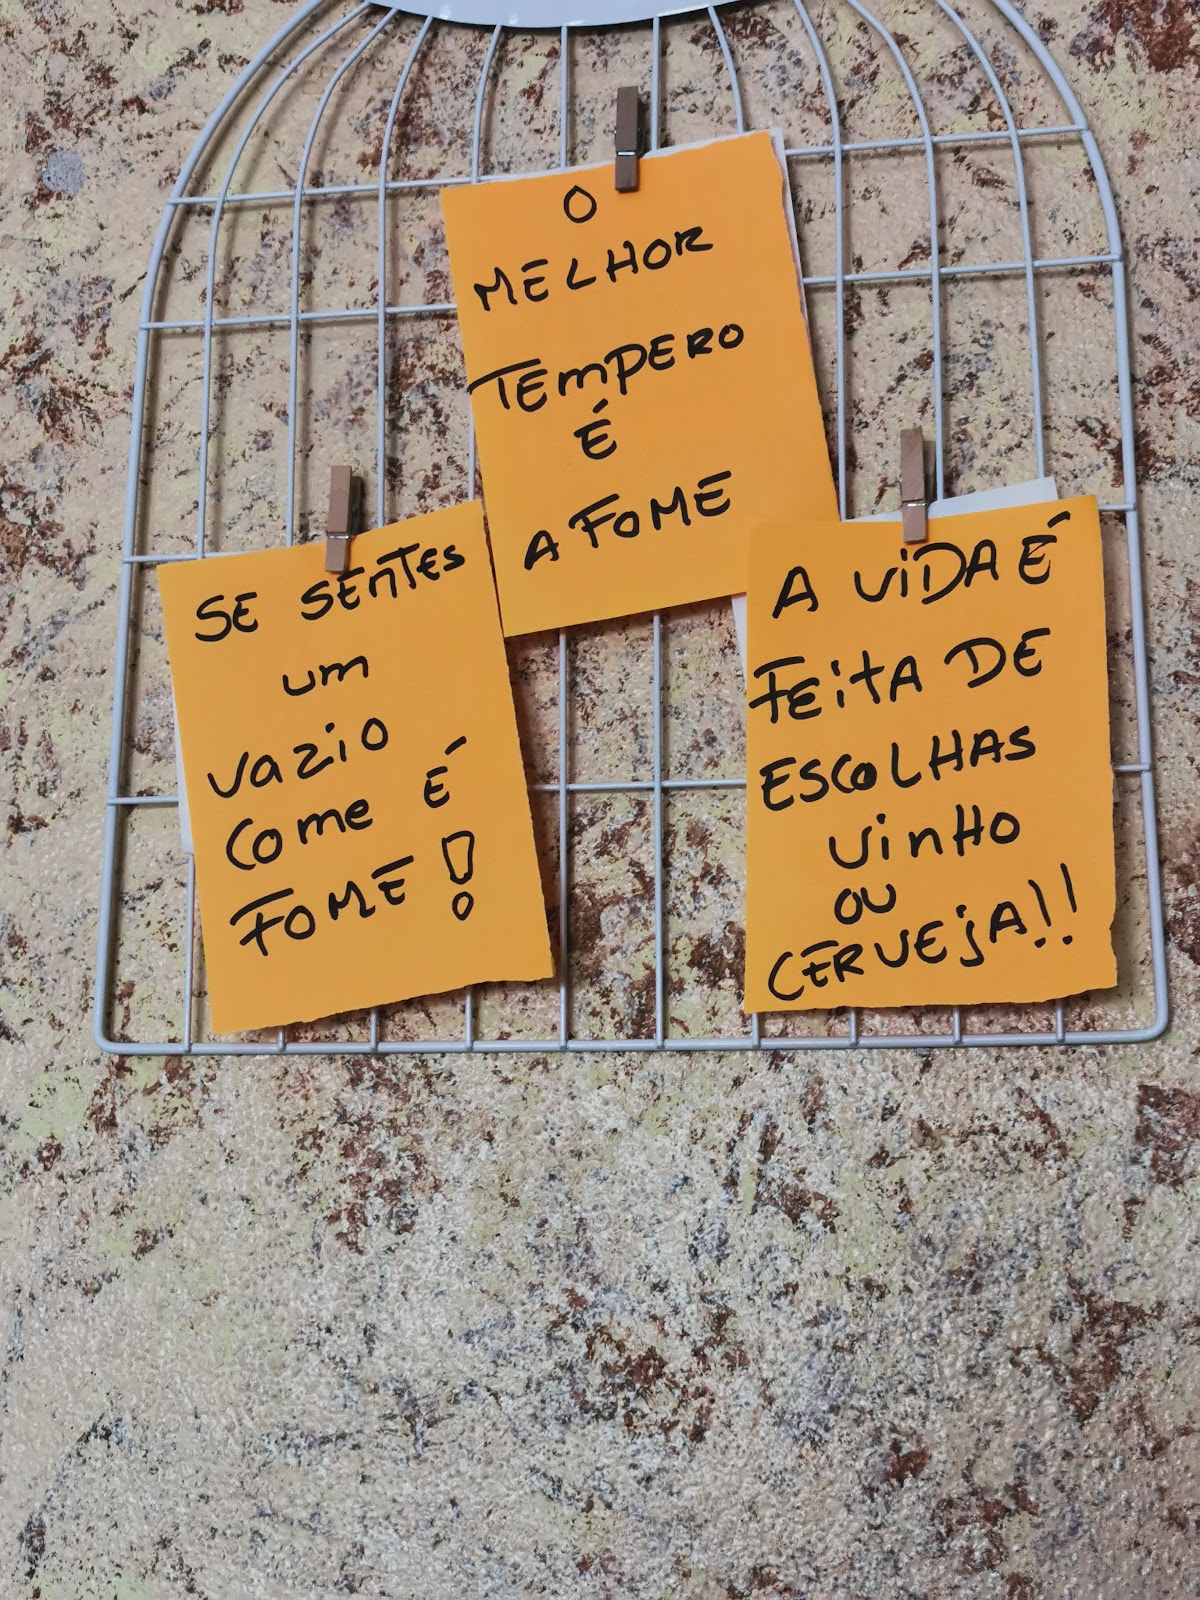 O
MELHOR
TEMPERO
É
A FOME
SE SENTES
um
vazio
come É
FOME!
A ViDA É
FEitA DE
ESCOLHAS
vinHo
OU
CERVEjA!!